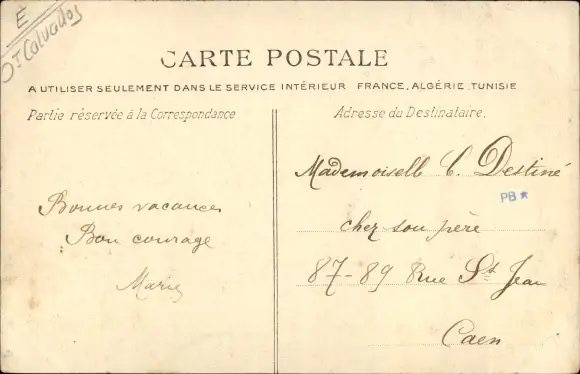 É
Dt Calvados
CARTE POSTALE
A UTILISER SEULEMENT DANS LE SERVICE INTÉRIEUR FRANCE, ALGÉRIE, TUNISIE
Partie réservée à la Correspondance
Adresse du Destinataire.
Bonnes vacances
Bon courage
Mademoiselle C. Destiné
PB*
chez son père
87-89 Rue St Jean
Caen